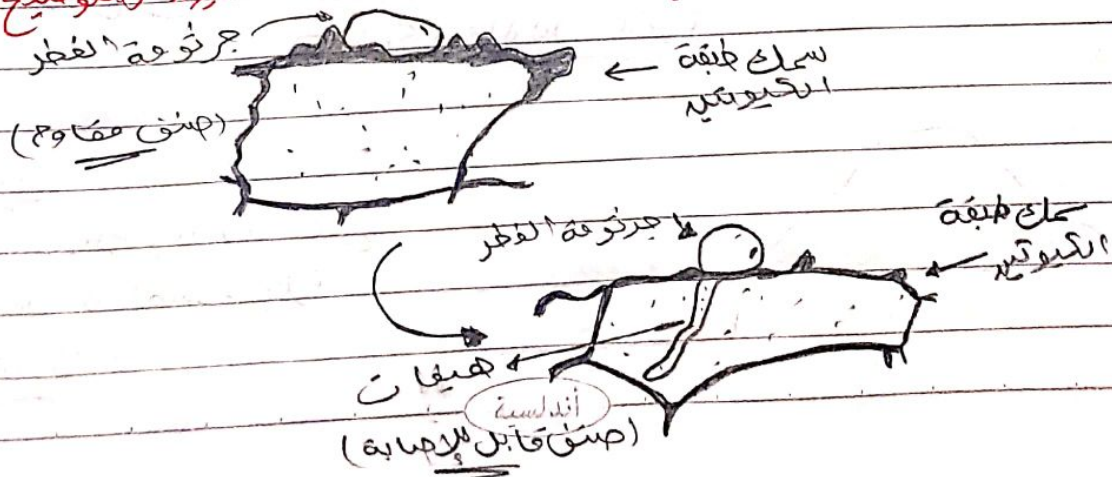 جرثومة الفطر
سمك طبقة
الكيوتين
(صنف مقاوم)
جرثومة الفطر
سمك طبقة
الكيوتين
هيفات
أندلسية
(صنف قابل للإصابة)